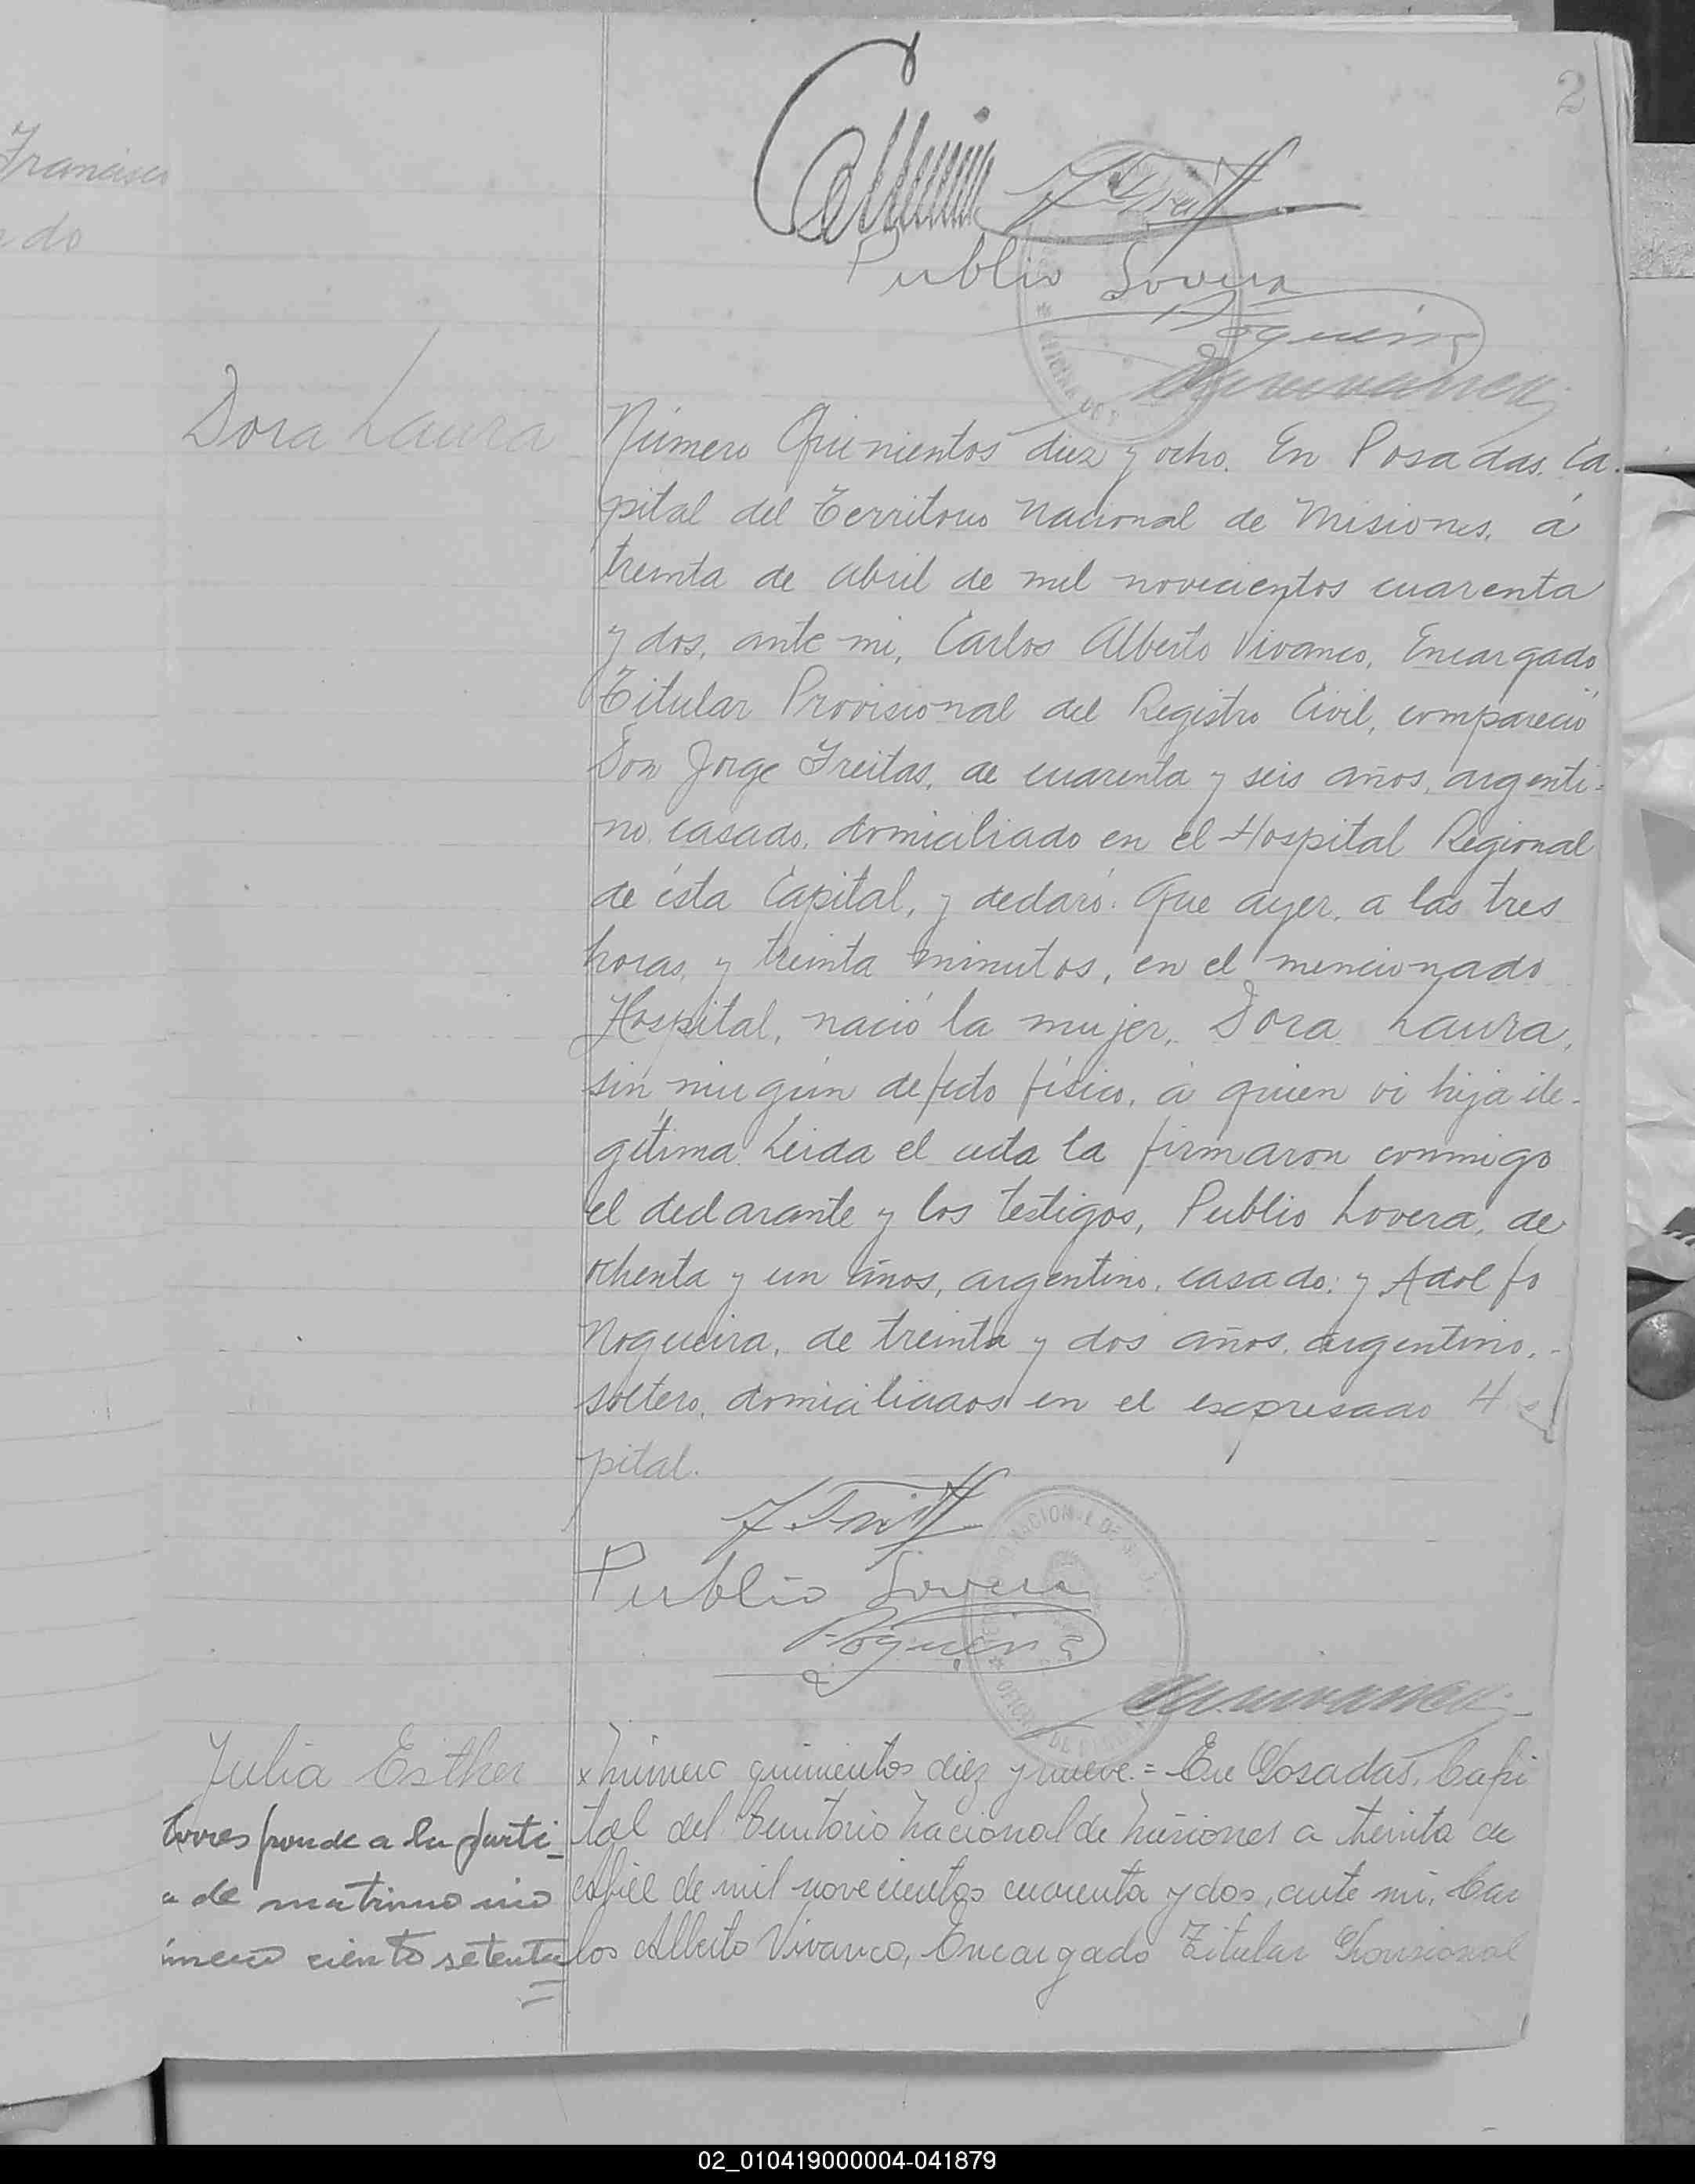 2
Francisco
do
Publio Lovera
Nogueira
Dora Laura
Número Quinientos diez y ocho. En Posadas, Ca-
pital del Territorio Nacional de Misiones, á
treinta de abril de mil novecientos cuarenta
y dos, ante mi, Carlos Alberto Vivanco, Encargado
Titular Provisional del Registro Civil, compareció
Don Jorge Freitas, de cuarenta y seis años, argenti-
no, casado, domiciliado en el Hospital Regional
de ésta Capital, y declaró: Que ayer, a las tres
horas, y treinta minutos, en el mencionado
Hospital, nació la mujer, Dora Laura,
sin ningún defecto físico, á quien vi hija ile-
gitima. Leida el acta la firmaron conmigo
el declarante y los testigos, Publio Lovera, de
ochenta y un años, argentino, casado; y Adolfo
Nogueira, de treinta y dos años, argentino,
soltero, domiciliados en el expresado
pital.
Publio Lovera
Nogueira
Julia Esther
Corresponde a la parti-
a de matrimonio
úmero ciento setenta
=
x Número quinientos diez y nueve.= En Posadas, Capi
tal del Territorio Nacional de Misiones a treinta de
abril de mil novecientos cuarenta y dos, ante mi, Car
los Alberto Vivanco, Encargado Titular Provisional
02_010419000004-041879